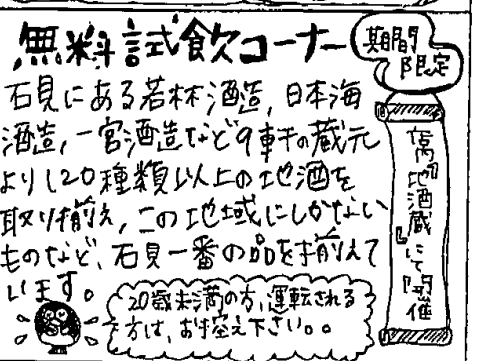 無料試飲コーナー
期間
限定
石見にある若林酒造,日本海
酒造,一宮酒造など9軒の蔵元
より120種類以上の地酒を
取り揃え,この地域にしかない
ものなど、石見一番の品を揃えて
います。
地酒蔵』にて開催
20歳未満の方、運転される
方は、お控え下さい。。